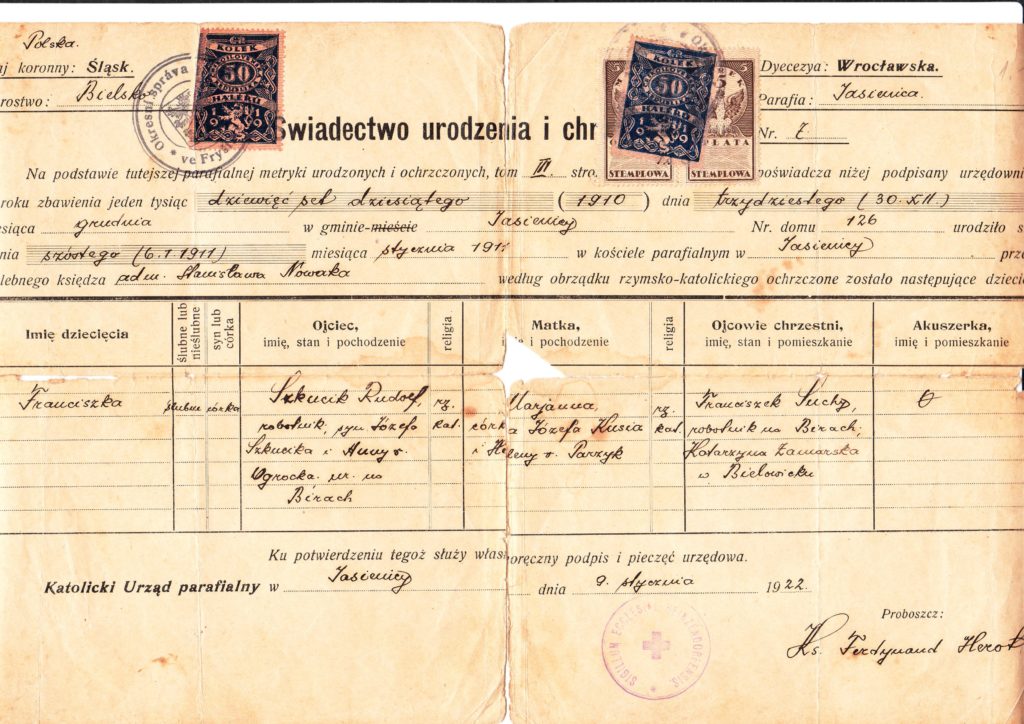 Polska.
aj koronny: Śląsk.
Dyecezya: Wrocławska.
rostwo: Bielsko
Parafia: Jasienica.
Świadectwo urodzenia i chr
Nr. 7
Okresní správa
ve Fryš
KOLEK
50
HALÉŘŮ
1919
KOLEK
50
HALÉŘŮ
1919
5
5
OPŁATA
STEMPLOWA
STEMPLOWA
Na podstawie tutejszej parafialnej metryki urodzonych i ochrzczonych, tom III. stro. poświadcza niżej podpisany urzędowni
roku zbawienia jeden tysiąc dziewięć set dziesiątego (1910) dnia trzydziestego (30.XII.)
siąca grudnia w gminie-mieście Jasienicy Nr. domu 126 urodziło s
nia szóstego (6.1.1911) miesiąca stycznia 1911 w kościele parafialnym w Jasienicy prz
lebnego księdza adm. Stanisława Nowaka według obrządku rzymsko-katolickiego ochrzczone zostało następujące dzieci
Imię dziecięcia
ślubne lub nieślubne
syn lub córka
Ojciec,
imię, stan i pochodzenie
religia
Matka,
i pochodzenie
religia
Ojcowie chrzestni,
imię, stan i pomieszkanie
Akuszerka,
imię i pomieszkanie
Franciszka
ślubne
córka
Szkucik Rudolf,
robotnik, syn Józefa
Szkucika i Anny r.
Ogrocka. ur. na
Birach
rz.
kat.
Marjanna,
córka Józefa Kusia
i Heleny r. Parzyk
rz.
kat.
Franciszek Suchy,
robotnik na Birach;
Katarzyna Zamarska
w Bielowicku
Ku potwierdzeniu tegoż służy własnoręczny podpis i pieczęć urzędowa.
Katolicki Urząd parafialny w Jasienicy dnia 9. stycznia 1922
SIGILLUM ECCLESIAE
Proboszcz:
Ks. Ferdynand Herot